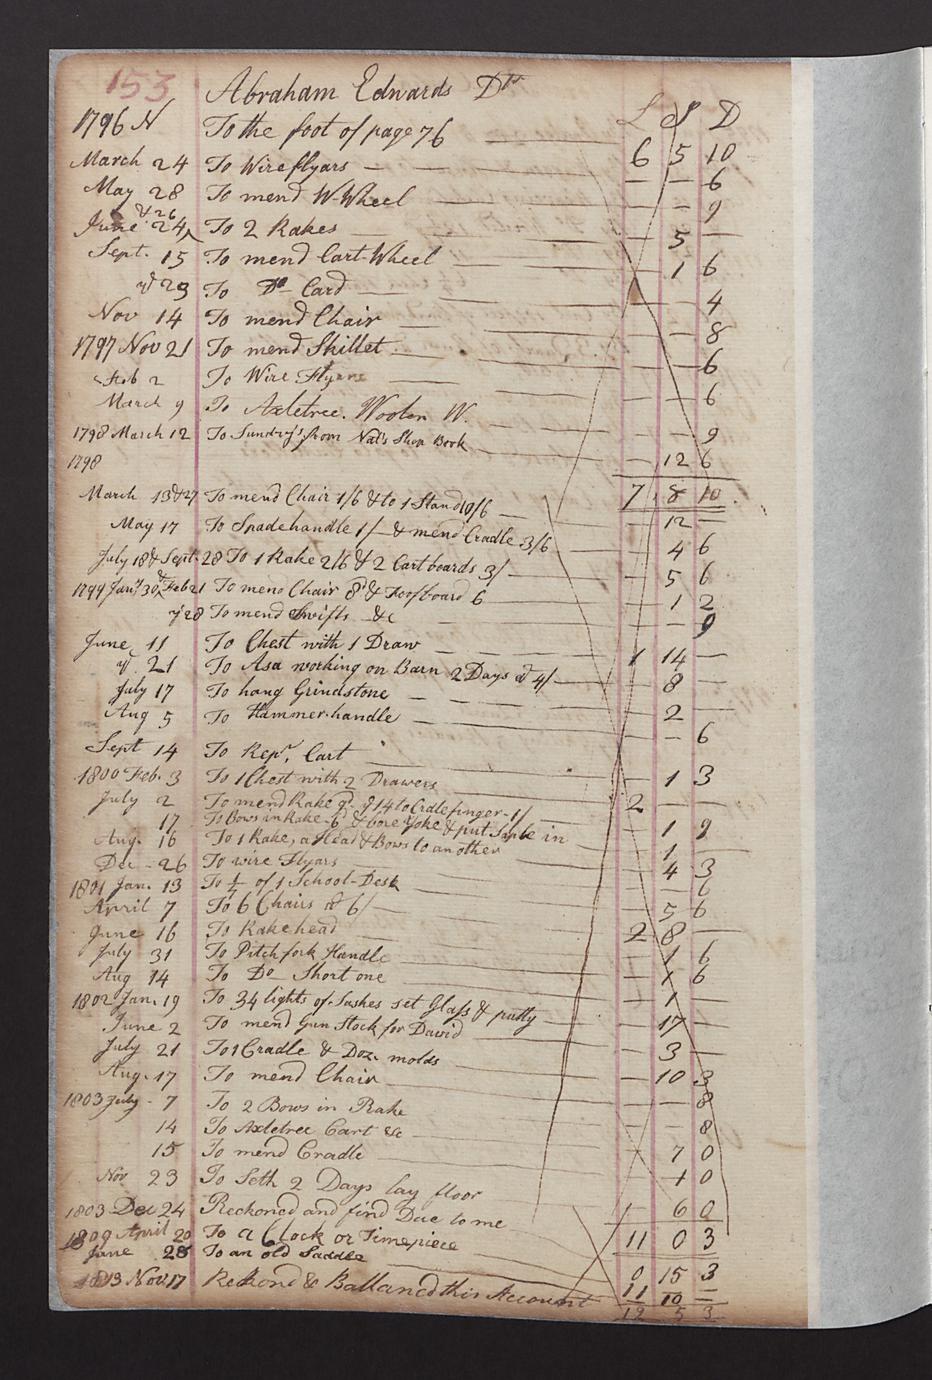 153 Abraham Edwards Dr
£ S D
1796 N To the foot of page 76 — 6 5 10
March 24 To Wire flyars — — — 6
May 28 To mend W-Wheel — — — 9
June 24 & 26 To 2 Rakes — — 5 —
Sept. 15 To mend Cart-Wheel — — 1 6
yd 29 To Do Card — — — 4
Nov 14 To mend Chair — — — 8
1797 Nov 21 To mend Skillet — — — 6
Feb 2 To Wire Flyars — — — 6
March 9 To Axletree. Woolen W. — — 9
1798 March 12 To Sundrys from Nat's Shop Book — 12 6
1798
7 8 10
March 13 & 27 To mend Chair 1/6 & to 1 Stand 10/6 — 12 —
May 17 To Spade handle 1/— & mend Cradle 3/6 — 4 6
July 18 & Sept. 28 To 1 Rake 2/6 & 2 Cart boards 3/— — 5 6
1799 Jany 30 & Feb 21 To mend Chair 8d & Footboard 6 — 1 2
28 To mend Swifts &c — — 9
June 11 To Chest with 1 Draw — 1 14 —
yd 21 To Asa working on Barn 2 Days @ 4/ — 8 —
July 17 To hang Grindstone — — 2 —
Aug 5 To Hammer-handle — — — 6
Sept 14 To Repr. Cart — — 1 3
1800 Feb. 3 To 1 Chest with 2 Drawers 2 — —
July 2 To mend Rake 9d & 14 to Cradle finger-1/ — 1 9
17 To Bows in Rake-6d & bore Yoke & put Staple in — 1 —
Aug. 16 To 1 Rake, a Head & Bows to another — 4 3
Dec - 26 To wire Flyars — — — 6
1801 Jan. 13 To 1/7 of 1 School-Desk — — 5 6
April 7 To 6 Chairs @ 6/ — 2 8 —
June 16 To Rakehead — — 1 6
July 31 To Pitchfork Handle — — 1 6
Aug 14 To Do Short one — — 1 —
1802 Jan. 19 To 34 lights of Sashes set Glass & putty — 17 —
June 2 To mend Gun Stock for David — 3 —
July 21 To 1 Cradle & Doz. molds — 10 3
Aug. 17 To mend Chair — — 8
1803 July - 7 To 2 Bows in Rake — — 8
14 To Axletree Cart &c — — 7 0
15 To mend Cradle — — 1 0
Nov 23 To Seth 2 Days lay floor — 6 0
1803 Dec 24 Reckoned and find Due to me 11 0 3
1809 April 20 To a Clock or Timepiece — 0 15 3
June 28 To an old Saddle — 11 10 —
1813 Nov 17 Reckond & Ballanced this Account 12 5 3